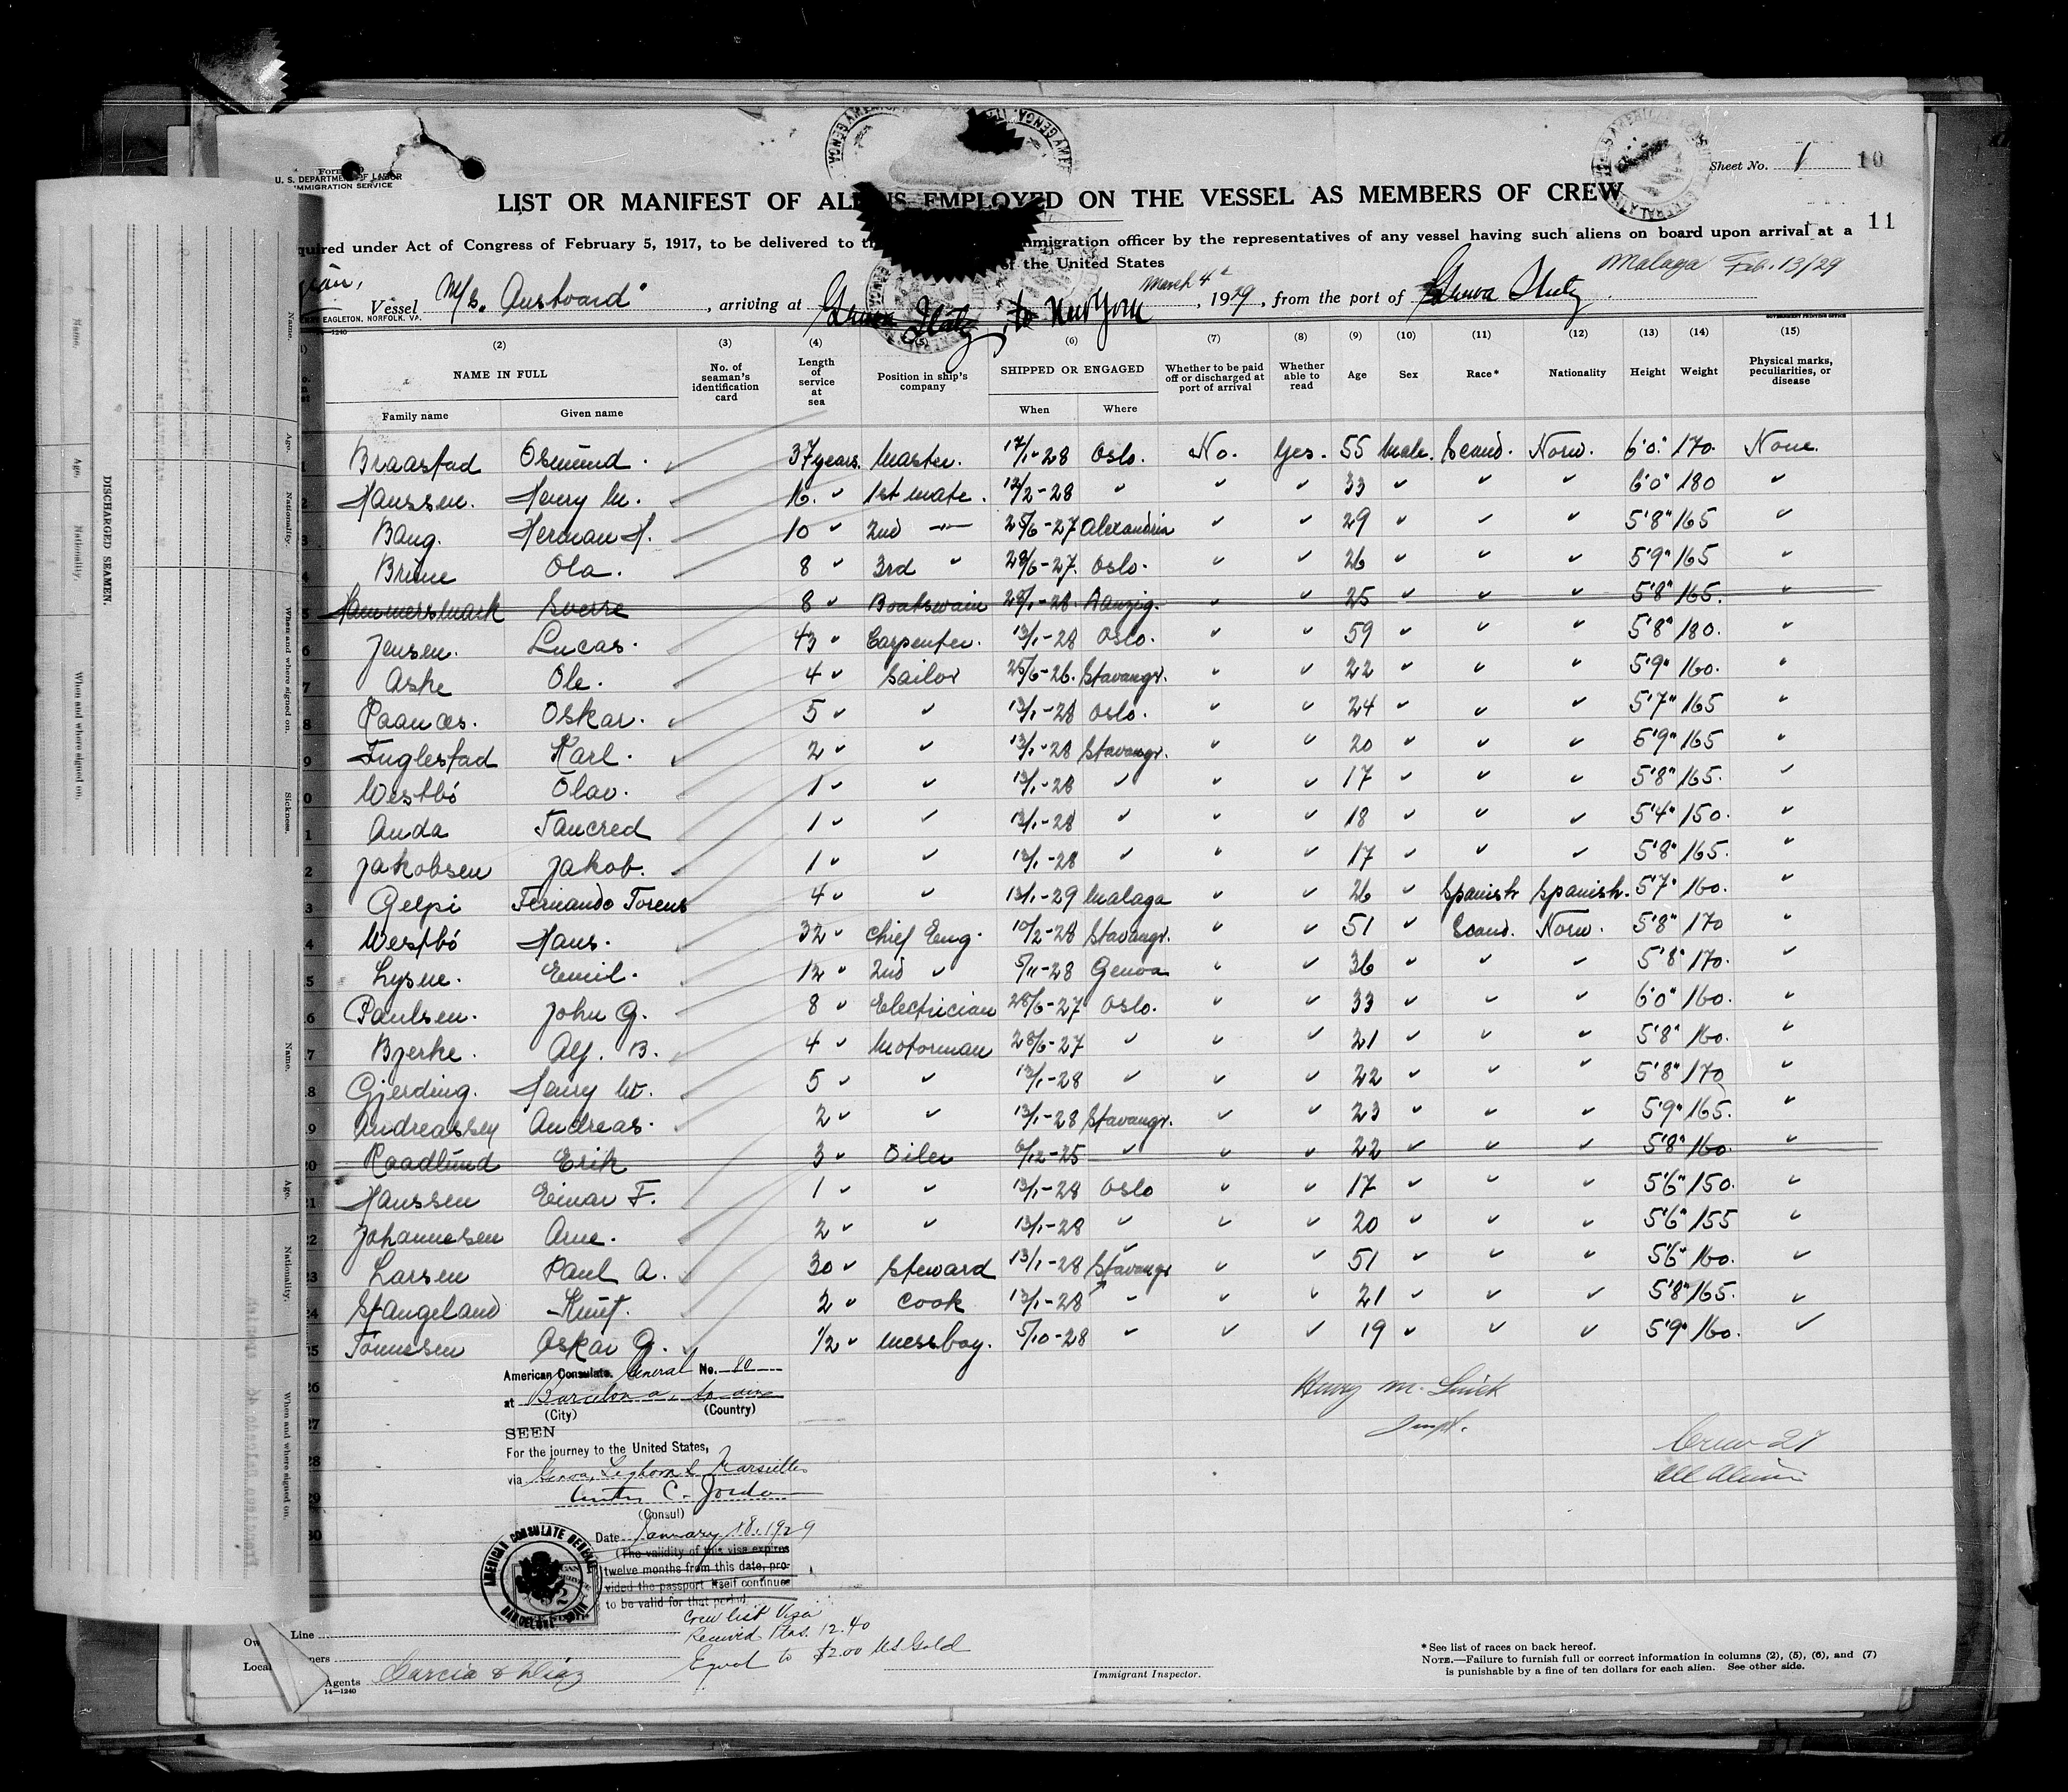 Sheet No. 1 10
11
U. S. DEPARTMENT OF LABOR
IMMIGRATION SERVICE
LIST OR MANIFEST OF ALIENS EMPLOYED ON THE VESSEL AS MEMBERS OF CREW
quired under Act of Congress of February 5, 1917, to be delivered to th mmigration officer by the representatives of any vessel having such aliens on board upon arrival at a
of the United States
Malaga Feb. 13/29
Vessel M/S. Austvard , arriving at Genoa Italy, to New York March 4 , 1929 , from the port of Genoa Italy
EAGLETON, NORFOLK, VA.
14—1240
GOVERNMENT PRINTING OFFICE
(2) (3) (4) (5) (6) (7) (8) (9) (10) (11) (12) (13) (14) (15)
NAME IN FULL No. of seaman's identification card Length of service at sea Position in ship's company SHIPPED OR ENGAGED Whether to be paid off or discharged at port of arrival Whether able to read Age Sex Race* Nationality Height Weight Physical marks, peculiarities, or disease
Family name Given name When Where
Braastad Osmund. 37 years. Master. 17/1-28 Oslo. No. Yes. 55 Male. Scand. Norw. 6'0" 170. None.
2 Hanssen. Henry M. 16 " 1st Mate. 12/2-28 " " " 33 " " " 6'0" 180 "
3 Bang. Herman H. 10 " 2nd —"— 25/6-27 Alexandria " " 29 " " " 5'8" 165 "
Brune Ola. 8 " 3rd " 28/6-27. Oslo. " " 26 " " " 5'9" 165 "
5 Hammersmark Sverre 8 " Boatswain 28/1-28. Danzig. " " 25 " " " 5'8" 165. "
6 Jensen. Lucas. 43 " Carpenter. 13/1-28 Oslo. " " 59 " " " 5'8" 180. "
7 Aske Ole. 4 " Sailor 25/6-26. Stavangr. " " 22 " " " 5'9" 160. "
8 Paanæs. Oskar. 5 " " 13/1-28 Oslo. " " 24 " " " 5'7" 165 "
9 Fuglestad Karl. 2 " " 13/1-28 Stavangr. " " 20 " " " 5'9" 165 "
0 Westbö Olav. 1 " " 13/1-28 " " " 17 " " " 5'8" 165. "
1 Anda Tancred 1 " " 13/1-28 " " " 18 " " " 5'4" 150. "
2 Jakobsen Jakob. 1 " " 13/1-28 " " " 17 " " " 5'8" 165. "
3 Gelpi Fernando Torens 4 " " 13/1-29 Malaga " " 26 " Spanish Spanish. 5'7" 160. "
4 Westbö Hans. 32 " Chief Eng. 10/2-28 Stavangr. " " 51 " Scand. Norw. 5'8" 170 "
5 Lysne. Emil. 12 " 2nd " 5/11-28 Genoa " " 36 " " " 5'8" 170. "
6 Paulsen. John G. 8 " Electrician 28/6-27 Oslo. " " 33 " " " 6'0" 160. "
7 Bjerke. Alf. B. 4 " Motorman 28/6-27 " " " 21 " " " 5'8" 160. "
8 Gjerding. Henry W. 5 " " 13/1-28 " " " 22 " " " 5'8" 170 "
9 Andreassen Andreas. 2 " " 13/1-28 Stavangr. " " 23 " " " 5'9" 165. "
20 Roadlund Erik 3 " Oiler 6/12-25 " " " 22 " " " 5'8" 160. "
21 Hanssen Einar F. 1 " " 13/1-28 Oslo " " 17 " " " 5'6" 150. "
22 Johannesen Arne. 2 " " 13/1-28 " " " 20 " " " 5'6" 155 "
23 Larsen Paul A. 30 " Steward 13/1-28 Stavangr " " 51 " " " 5'6" 160. "
24 Stangeland Knut. 2 " Cook 13/1-28 " " " 21 " " " 5'8" 165. "
25 Tönnesen Oskar G. 1/2 " Messboy. 5/10-28 " " " 19 " " " 5'9" 160. "
26
27
28
29
30
American Consulate General No. 80
at Barcelona, Spain
(City) (Country)
SEEN
For the journey to the United States,
via Genoa, Leghorn & Marseilles
C. Jordan
(Consul)
Date January 18, 1929
(The validity of this visa expires
twelve months from this date, pro-
vided the passport itself continues
to be valid for that period.
AMERICAN CONSULATE GENERAL
BARCELONA SPAIN
Crew list Visa
Received Ptas. 12.40
Equal to $2.00 US Gold
Henry M.
Inspt.
Crew 27
All Aliens
Line
Agents Garcia & Diaz
14—1240
Immigrant Inspector.
*See list of races on back hereof.
NOTE.—Failure to furnish full or correct information in columns (2), (5), (6), and (7)
is punishable by a fine of ten dollars for each alien. See other side.
DISCHARGED SEAMEN.
Name. Age. Nationality. When and where signed on.
Name. Age. Nationality. When and where signed on. Sickness.
Name. Age. Nationality. When and where signed on.